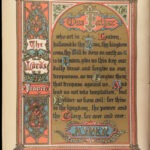 The
Lords
Prayer
Our Father
who art in Heaven,
hallowed be thy Name, thy kingdom
come, thy Will be done on earth as it
is in Heaven, give us this day our
daily bread and forgive us our
trespasses, as we forgive them
that trespass against us and
lead us not into temptation, but
deliver us from evil: for thine
is the kingdom, the power and
the Glory, for ever and